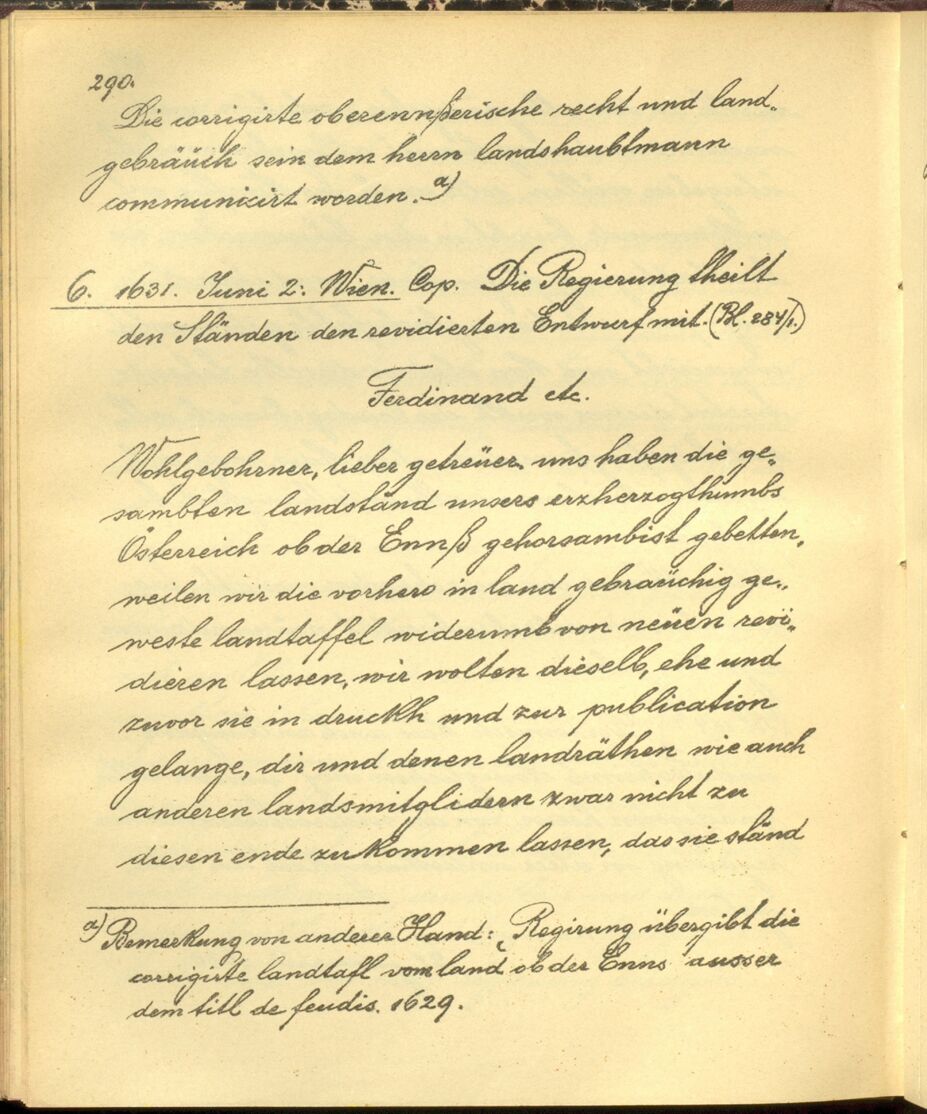 290.
Die corrigirte oberennßerische recht und land-
gebräüch sein dem herrn landshaubtmann
communicirt worden. a)
6. 1631. Juni 2: Wien. Cop. Die Regierung theilt
den Ständen den revidierten Entwurf mit. (Bl. 284/1.)
Ferdinand etc.
Wohlgebohrner, lieber getreüer. uns haben die ge-
sambten landständ unsers erzherzogthumbs
Österreich ob der Ennß gehorsambist gebetten,
weilen wir die vorhero in land gebraüchig ge-
weste landtaffel widerumb von neüen revi-
dieren lassen, wir wolten dieselb, ehe und
zuvor sie in druckh und zur publication
gelange, dir und denen landräthen wie auch
anderen landsmitglidern zwar nicht zu
diesen ende zu kommen lassen, das sie ständ
a) Bemerkung von anderer Hand: „Regirung übergibt die
corrigirte landtafl vom land ob der Enns ausser
dem titl de feudis. 1629.